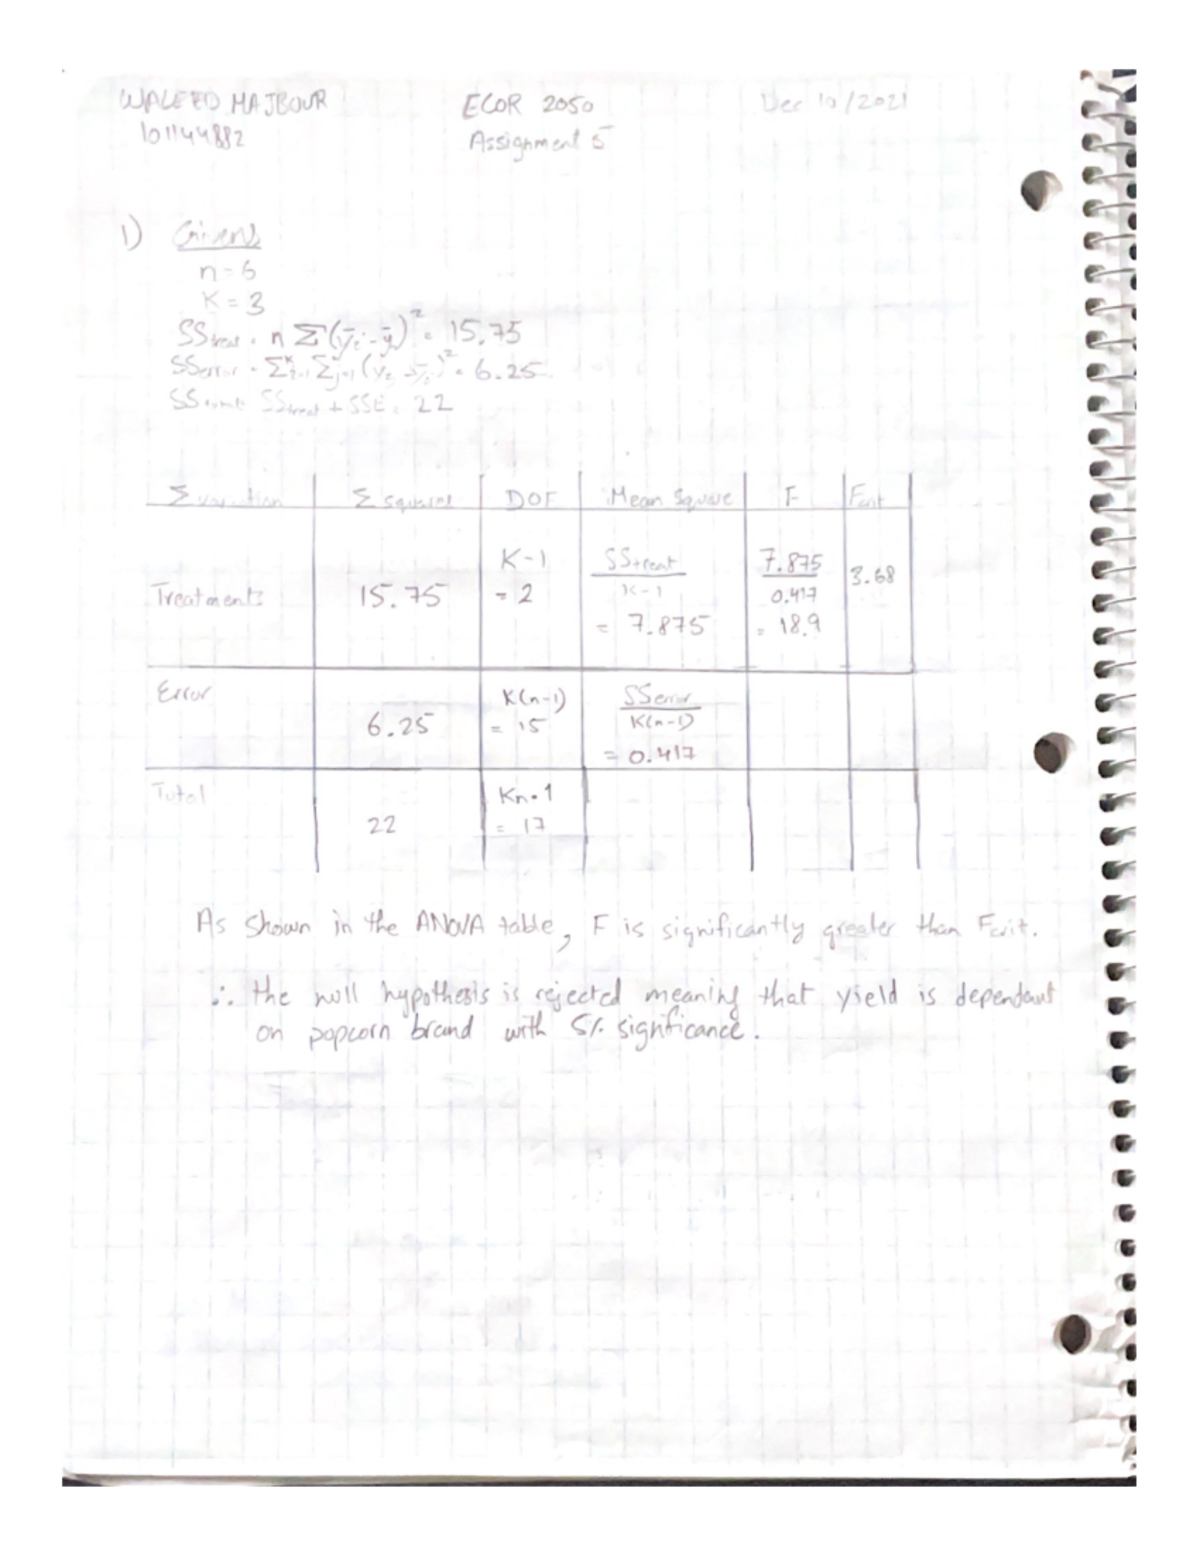 WALEED MAJBOUR ECOR 2050 Dec 10/2021
101144882 Assignment 5
1) Givens
n = 6
K = 3
SStreat = n Σ(ȳi - ȳ)² = 15.75
SSerror = 6.25
SStreat + SSE = 22
Σ squares DOF Mean Square F Fcrit
Treatments 15.75 K-1 = 2 SStreat / K-1 = 7.875 7.875 / 0.417 = 18.9 3.68
Error 6.25 K(n-1) = 15 SSerror / K(n-1) = 0.417
Total 22 Kn-1 = 17
As shown in the ANOVA table, F is significantly greater than Fcrit.
∴ the null hypothesis is rejected meaning that yield is dependant
on popcorn brand with 5% significance.